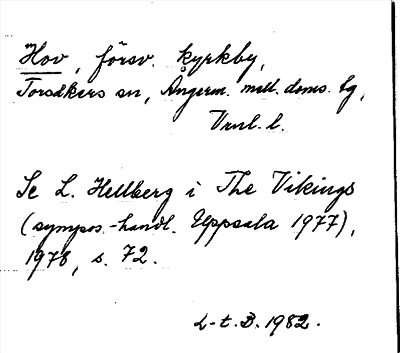 Hov, försv. kyrkby,
Torsåkers sn, Ångerm. mell. doms. tg,
Vrnl. l.
Se L. Hellberg i The Vikings
(sympos.-handl. Uppsala 1977),
1978, s. 72.
L-t. B. 1982.